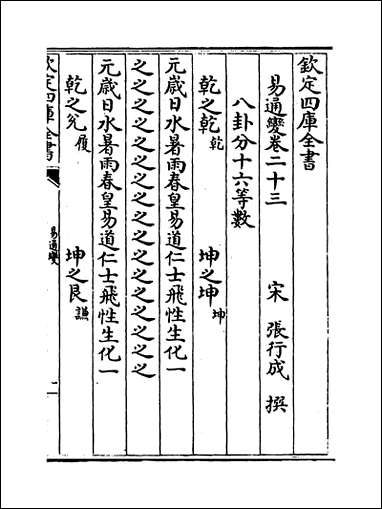 欽定四庫全書
易通變卷二十三
宋 張行成 撰
八卦分十六等數
乾之乾乾 坤之坤坤
元嵗日水暑雨春皇易道仁士飛性生化一
之之之之之之之之之之之之之之之之之
元嵗日水暑雨春皇易道仁士飛性生化一
乾之兌履 坤之艮謙
欽定四庫全書
易通變